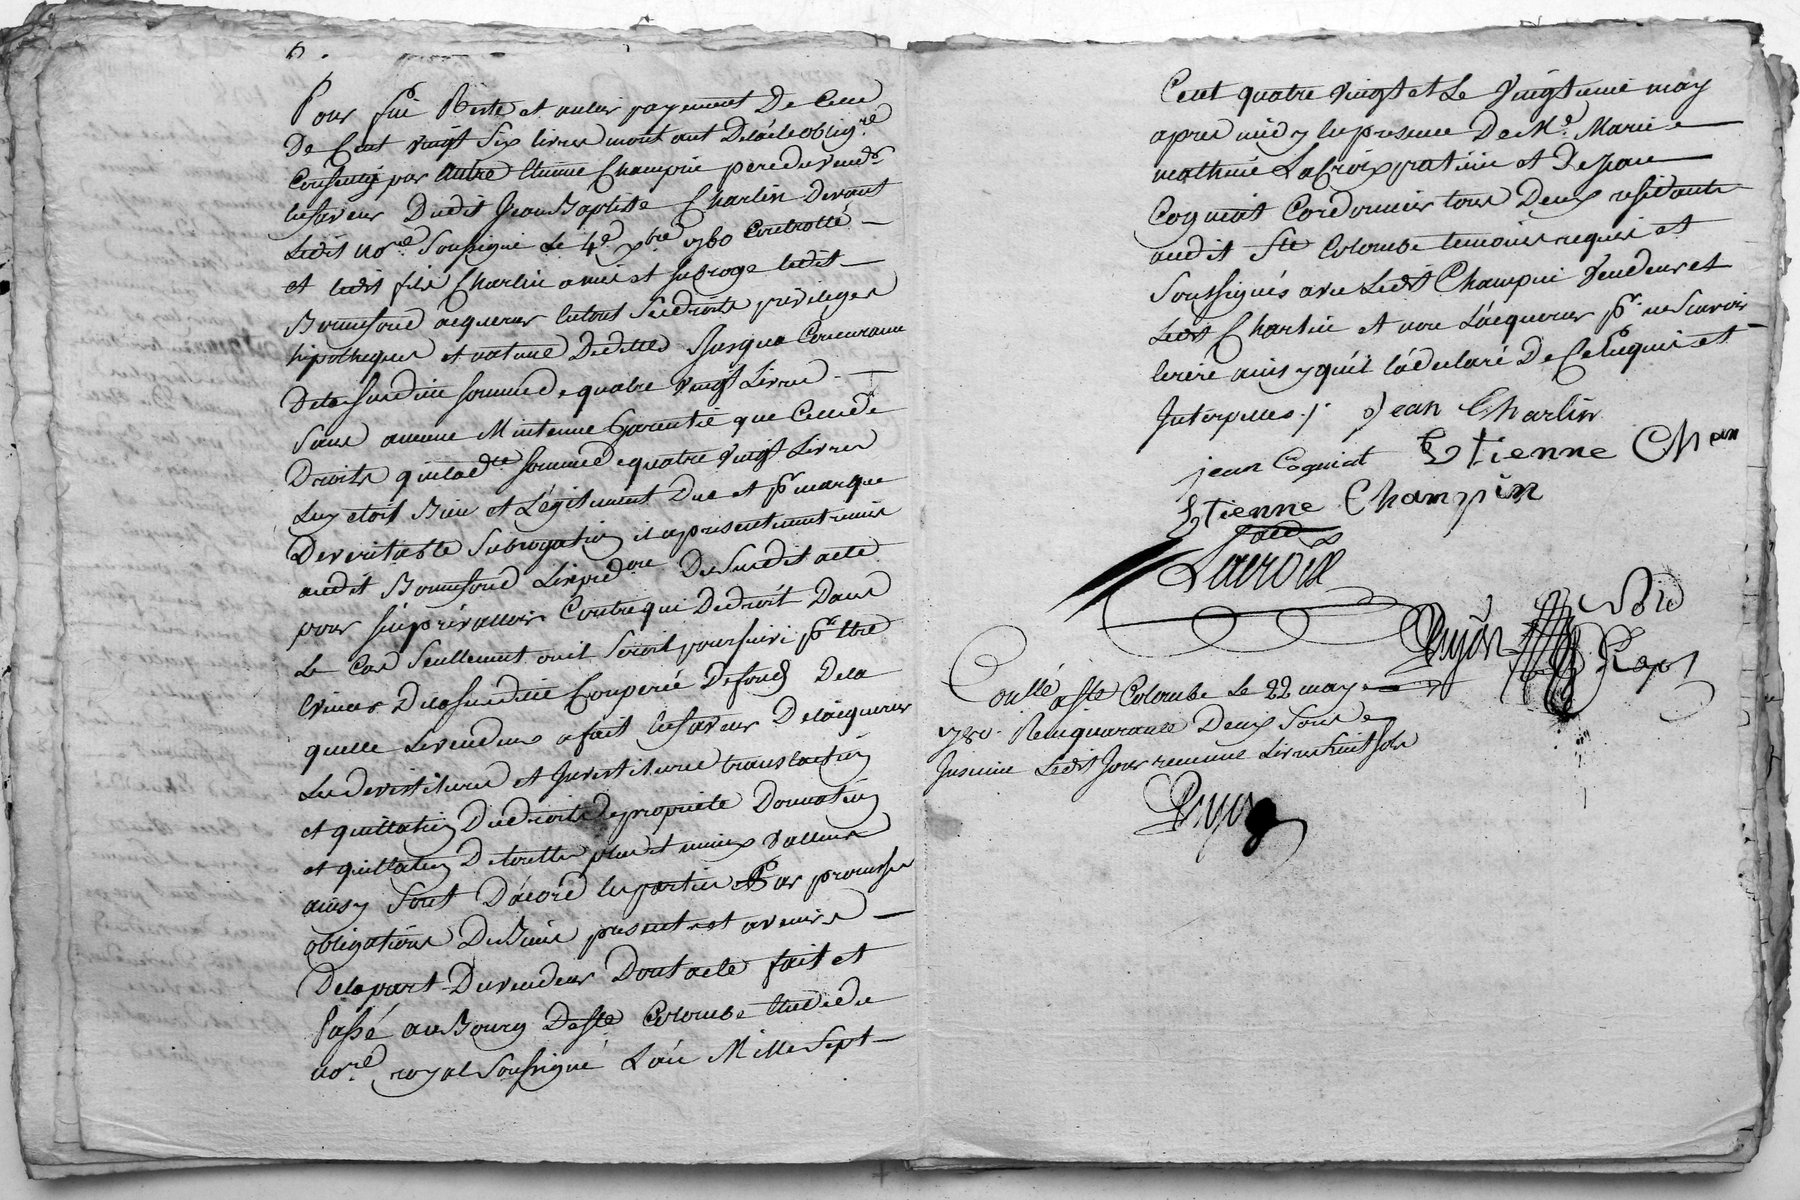 6.
Pour fin Reste et entier payement De Celle
De Cent vingt Six livres montant De la ditte oblig.re
Consentie par autre Etienne Champin pere du vend.r
En faveur Dudit Jean Baptiste Charlin Devant
Ledit no.re Soussigné Le 4.e xbre 1760 Controllé
et ledit fils Charlin a mis et Subrogé ledit
Bonnefond acquereur En tous Ses droits privileges
hipotheques et nature De dettes Jusqua Concurance
De la Susditte somme de quatre Vingt Livres
Sans aucune Maintenue Garentie que Celle de
Droits qui lad.te somme de quatre Vingt Livres
Luy etoit Bien et Légitimement Due et p.r marque
De veritable Subrogation il a presentement remis
audit Bonnefond L'expéd.on Du Susdit acte
pour s'en prévalloir Contre qui De droit Dans
Le Cas Seullement ou il Seroit poursuivi p.r Etre
Evincé De la Susditte Couperie De fond De la
quelle Le vendeur a fait En faveur De l'acquereur
Les devestiture et Investiture translation
et quittation Du droit De propriete Donnation
et quittation De toutte plus et mieux Valleur
ainsy Sont D'acord les parties Par promesses
obligations De Biens present et avenir
De la part Du vendeur Dont acte fait et
Passé au Bourg De Ste Colombe Etude du
no.re royal Soussigné L'an Mille Sept
Cent quatre Vingt et Le Vingtieme may
apres midy En presence De M.e Marie
mathieu Lacroix praticien et De Jean
Coquiat Cordonnier tous Deux residants
audit Ste Colombe temoins requis et
Soussignés avec Ledit Champin Vendeur et
Ledit Charlin et non L'acquereur p.r ne Scavoir
Ecrire ainsy qu'il l'a declaré De Ce Enquis et
Interpellés ./. Jean Charlin
jean Coquiat Etienne Cham
Etienne Champin
Lacroix
Pujon
Noé
Royal
Con.llé a Ste Colombe Le 22 may
1780. Reçu quarante Deux Sous
Insinué Ledit Jour
Pujon